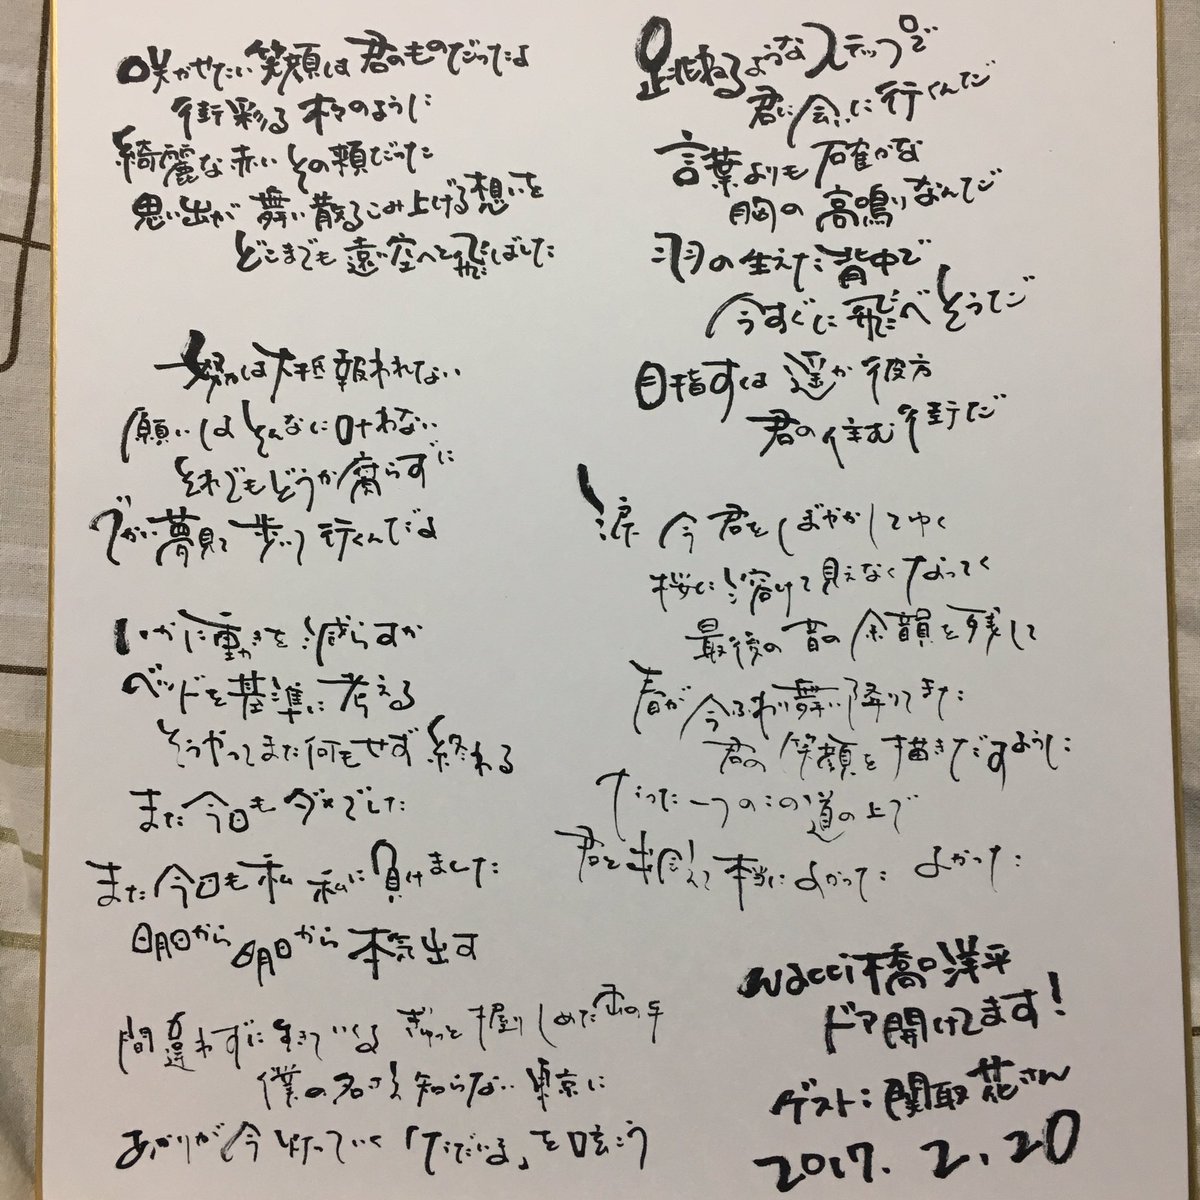 咲かせたい笑顔は君のものだったよ
街彩る木々のように
綺麗な赤いその頬だった
思い出が舞い散るこみ上げる想いを
どこまでも遠い空へと飛ばした
努力は大抵報われない
願いはそんなに叶わない
それでもどうか腐らずに
でかい夢見て歩いて行くんだよ
いかに動きを減らすか
ベッドを基準に考える
そうやってまた何もせず終わる
また今日もダメでした
また今日も私 私に負けました
明日から明日から本気出す
間違わずに生きていくよ ぎゅっと握りしめた手
僕の名さえ知らない東京に
あかりが今灯っていく「ただいま」を呟こう
跳ねるようなステップで
君に会いに行くんだ
言葉よりも確かな
胸の高鳴りなんだ
羽の生えた背中で
今すぐに飛べそうだ
目指すは遥か彼方
君の住む街だ
涙 今 君をぼやかしてゆく
桜に溶けて見えなくなってく
最後の音の余韻を残して
春が今ふわり舞い降りてきた
君の笑顔を描きだすように
たった一つのこの道の上で
君と出会えて本当によかった よかった
wacci橋口洋平
ドア開けてます！
ゲスト：関取花さん
2017.2.20